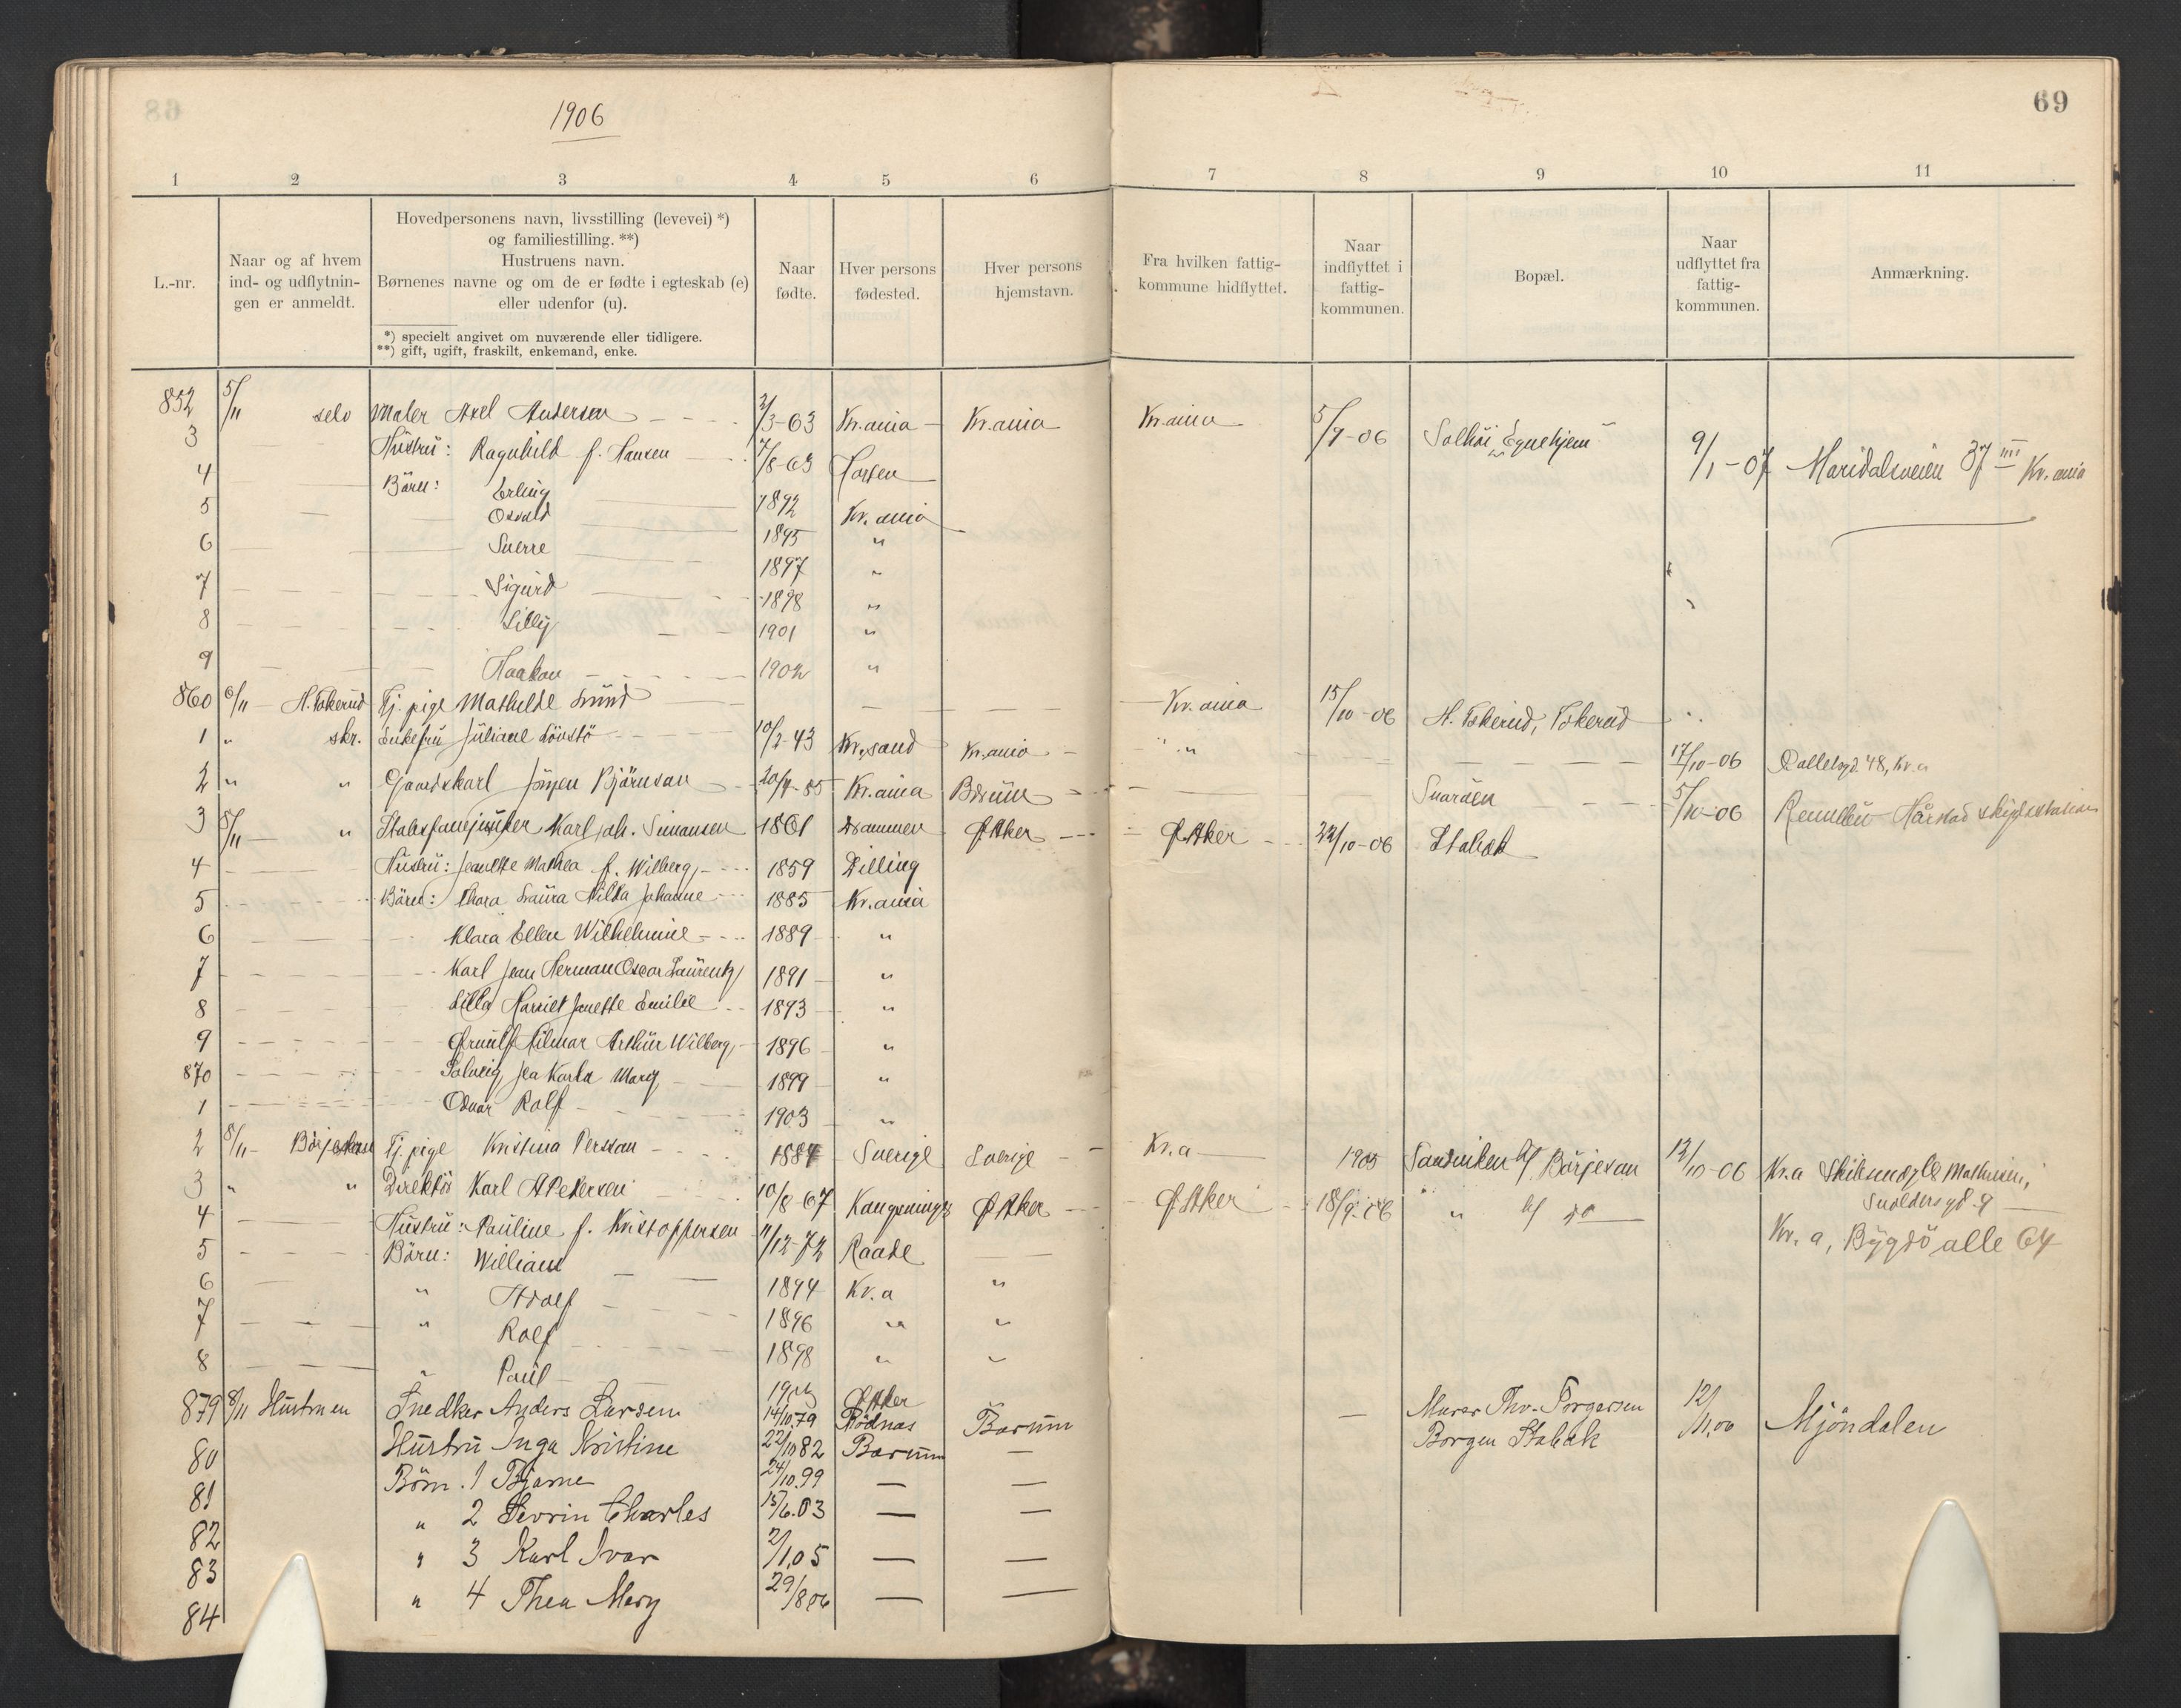 1906
69
1 2 3 4 5 6 7 8 9 10 11
L.-nr.
Naar og af hvem
ind- og udflytnin-
gen er anmeldt.
Hovedpersonens navn, livsstilling (levevei) *)
og familiestilling. **)
Hustruens navn.
Børnenes navne og om de er fødte i egteskab (e)
eller udenfor (u).
*) specielt angivet om nuværende eller tidligere.
**) gift, ugift, fraskilt, enkemand, enke.
Naar
fødte.
Hver persons
fødested.
Hver persons
hjemstavn.
Fra hvilken fattig-
kommune hidflyttet.
Naar
indflyttet i
fattig-
kommunen.
Bopæl.
Naar
udflyttet fra
fattig-
kommunen.
Anmærkning.
852 5/11 selv Maler Axel Andersen 2/3-63 Kr.ania Kr.ania Kr.ania 5/9-06 Solhöi, Egnehjem 9/1-07 Maridalsveien 37 IIII Kr.ania
3 Hustru: Ragnhild f. Hansen 7/8-63 Horten
4 Börn: Erling 1892 Kr.ania
5 Osvald 1895 "
6 Sverre 1897 "
7 Sigurd 1898 "
8 Lilly 1901 "
9 Haakon 1902 "
860 6/11 H. Tokerud Tj. pige Mathilde Lund — — Kr.ania 15/10-06 H. Tokerud, Tokerud
1 " skr. Enkefru Juliane Lövstö 10/2-43 Kr.sand Kr.ania " " — 17/10-06 48, Kr.a
2 " " Gaardskarl Jörgen Björnsen 20/4-85 Kr.ania Bærum — — Snaröen 5/10-06
3 5/11 " Karl Joh. Simensen 1861 Drammen Ø Aker Ø Aker 22/10-06 Stabæk
4 Hustru: Jeanette Mathea f. Wilberg 1859 Dilling
5 Börn: Thora Laura Hilda Johanne 1885 Kr.ania
6 Klara Ellen Wilhelmine 1889 "
7 Karl Jean Herman Oscar Laurentz 1891 "
8 Lilla Harriet Janette Emilie 1893 "
9 Ørnulf Hilmar Arthur Wilberg 1896 "
870 Solveig Jea Karla Mary 1899 "
1 Odvar Rolf 1903 "
2 8/11 Börjeson Tj. pige Kristina Persson 1884 Sverige Sverige Kr.a 1905 Sandviken h/ Börjeson 12/10-06 Kr.a Mathiesen,
Snoldersgd 9
3 " " Direktör Karl A Petersen 10/8-67 Kongsvinger Ø Aker Ø Aker 18/9-06 " h/ do Kr.a, Bygdö alle 64
4 Hustru: Pauline f. Kristoppersen 11/12-72 Raade
5 Börn: William 1894 Kr.a "
6 " Adolf 1896 " "
7 " Rolf 1898 " "
8 " Paul Ø Aker
879 8/11 Hustruen Snedker Anders Larsen 14/10.79 Rödnas Bærum — Murer Thv. Torgersen
Borgen Stabæk 12/11.06 Mjöndalen
80 Hustru Inga Kristine 22/10 82 Bærum —
81 Börn. 1 Bjarne 24/10.99 — —
82 " 2 Sevrin Charles 15/6.03 — —
83 " 3 Karl Ivar 2/1.05 — —
84 " 4 Thea Mery 29/8 06 — —